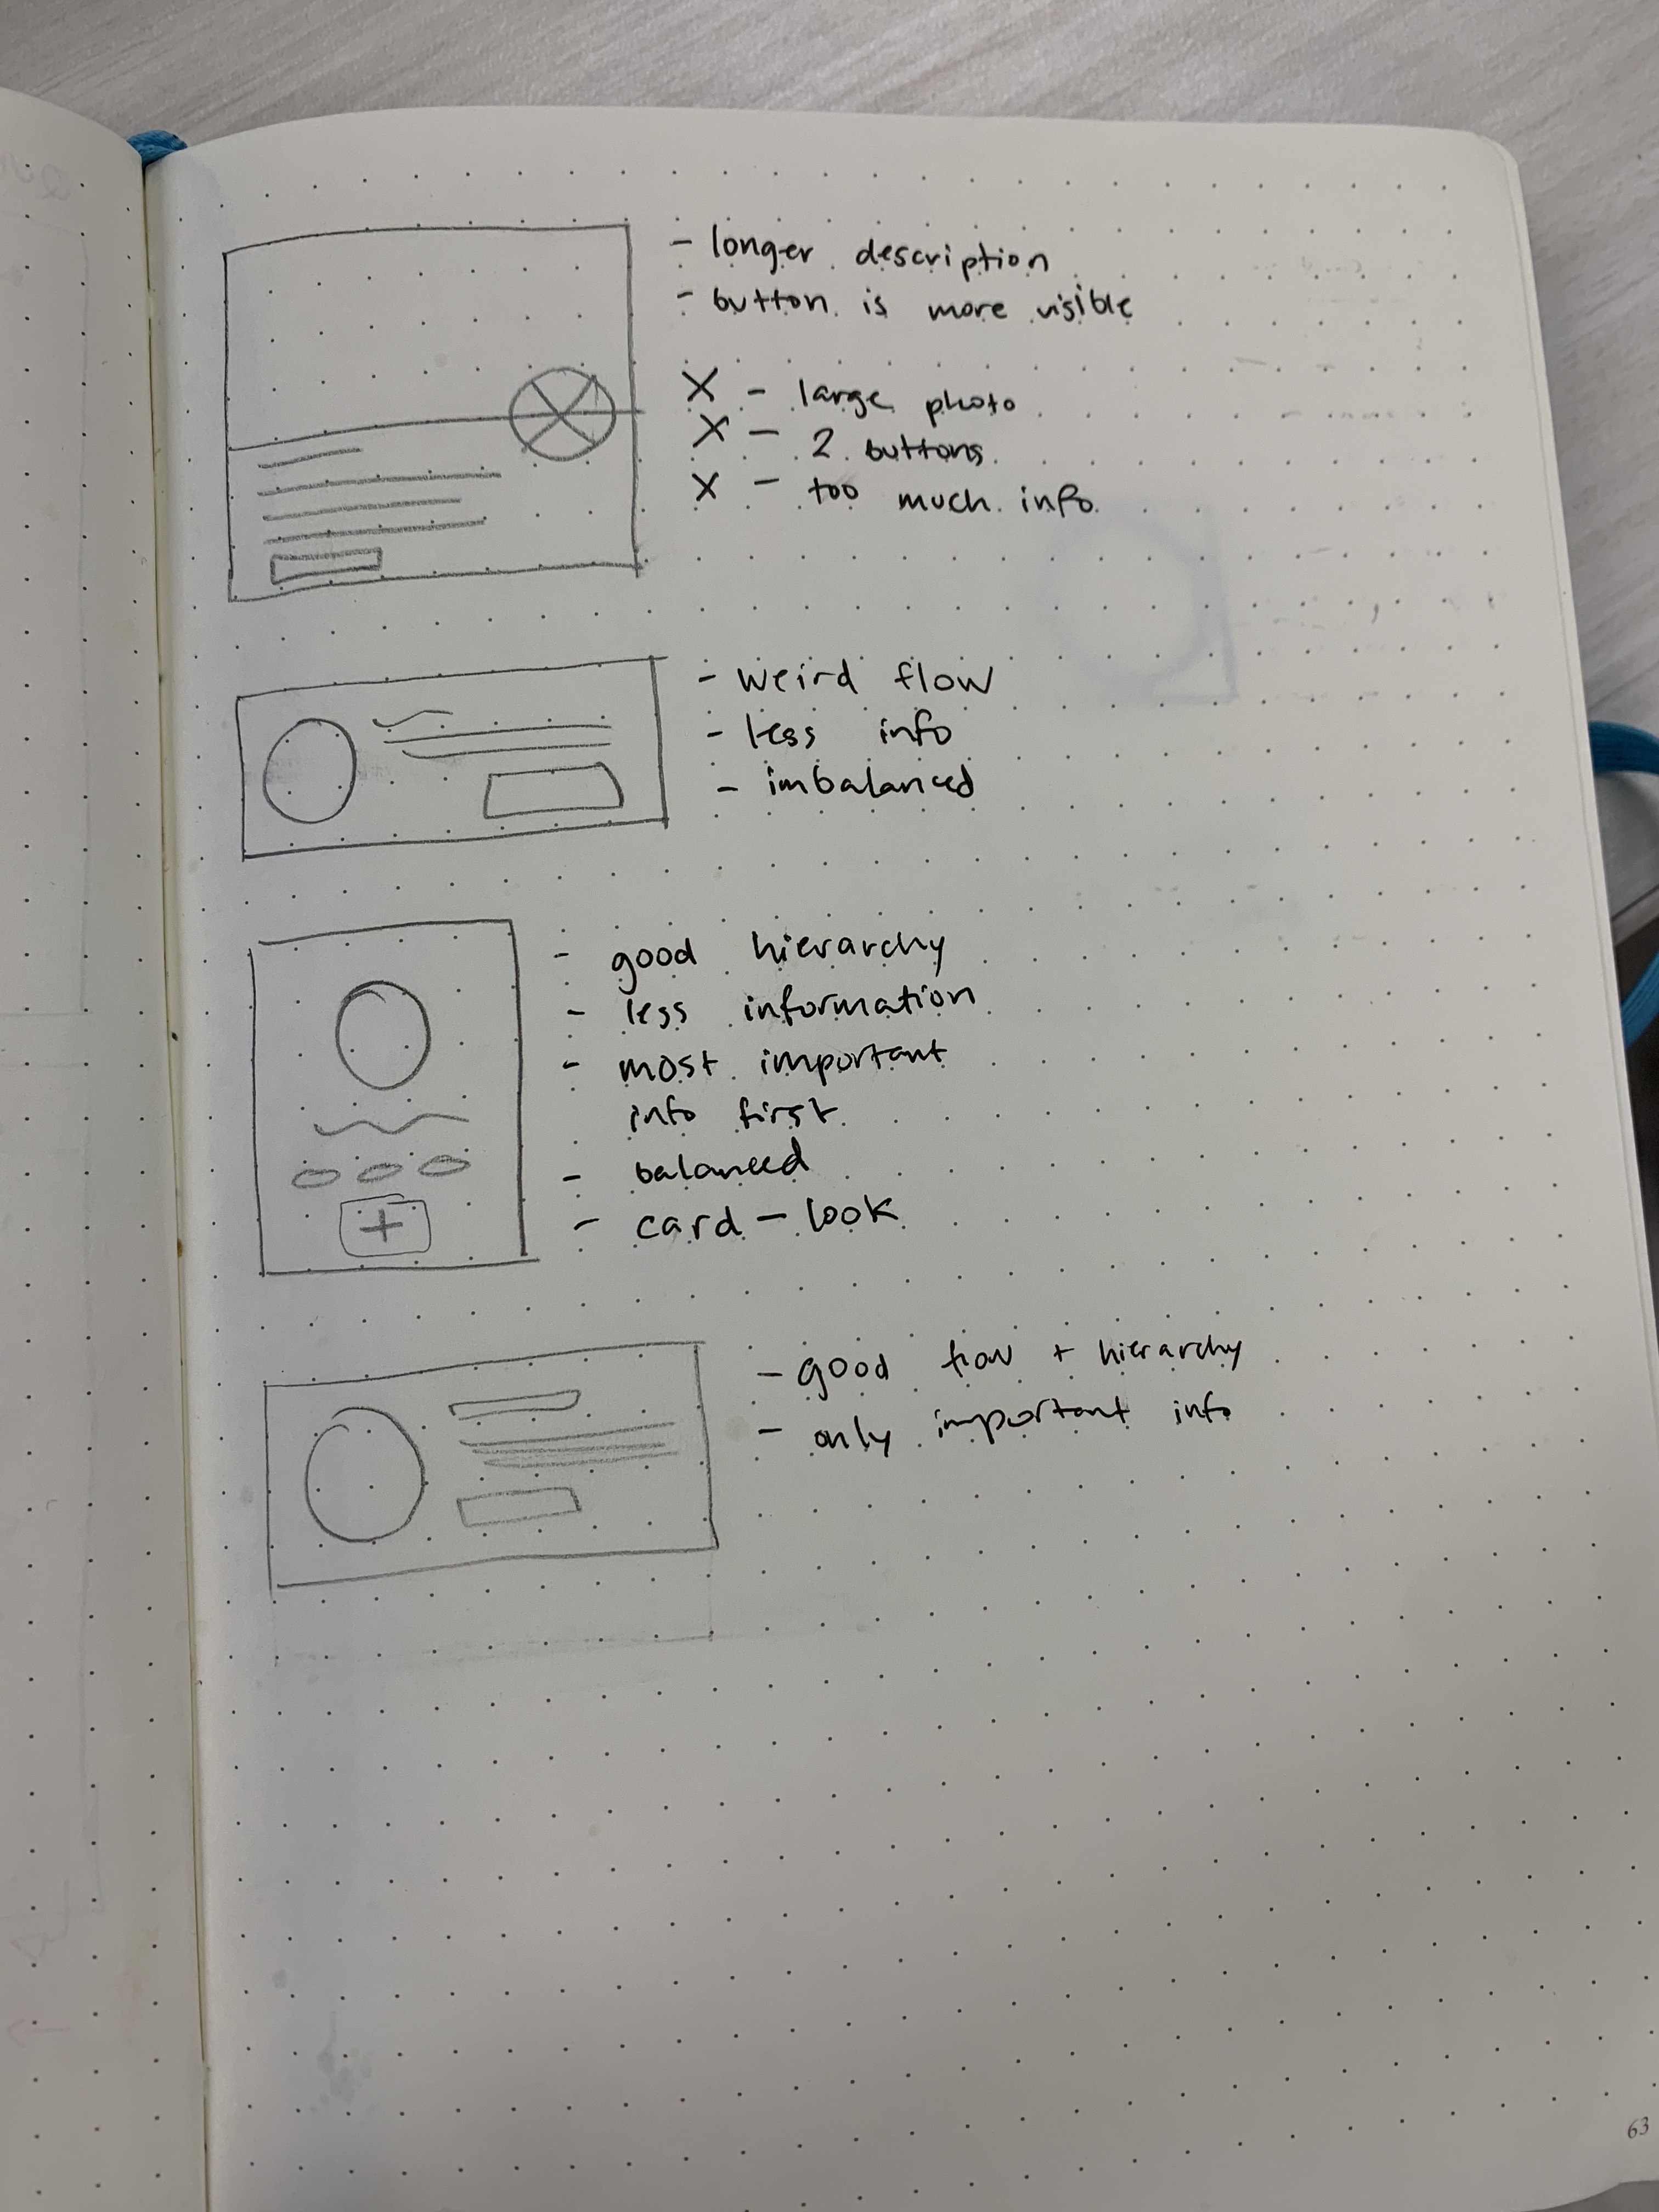 - longer description
- button is more visible
X - large photo
X - 2 buttons
X - too much info
- weird flow
- less info
- imbalanced
- good hierarchy
- less information
- most important
info first
- balanced
- card-look
- good flow + hierarchy
- only important info
63